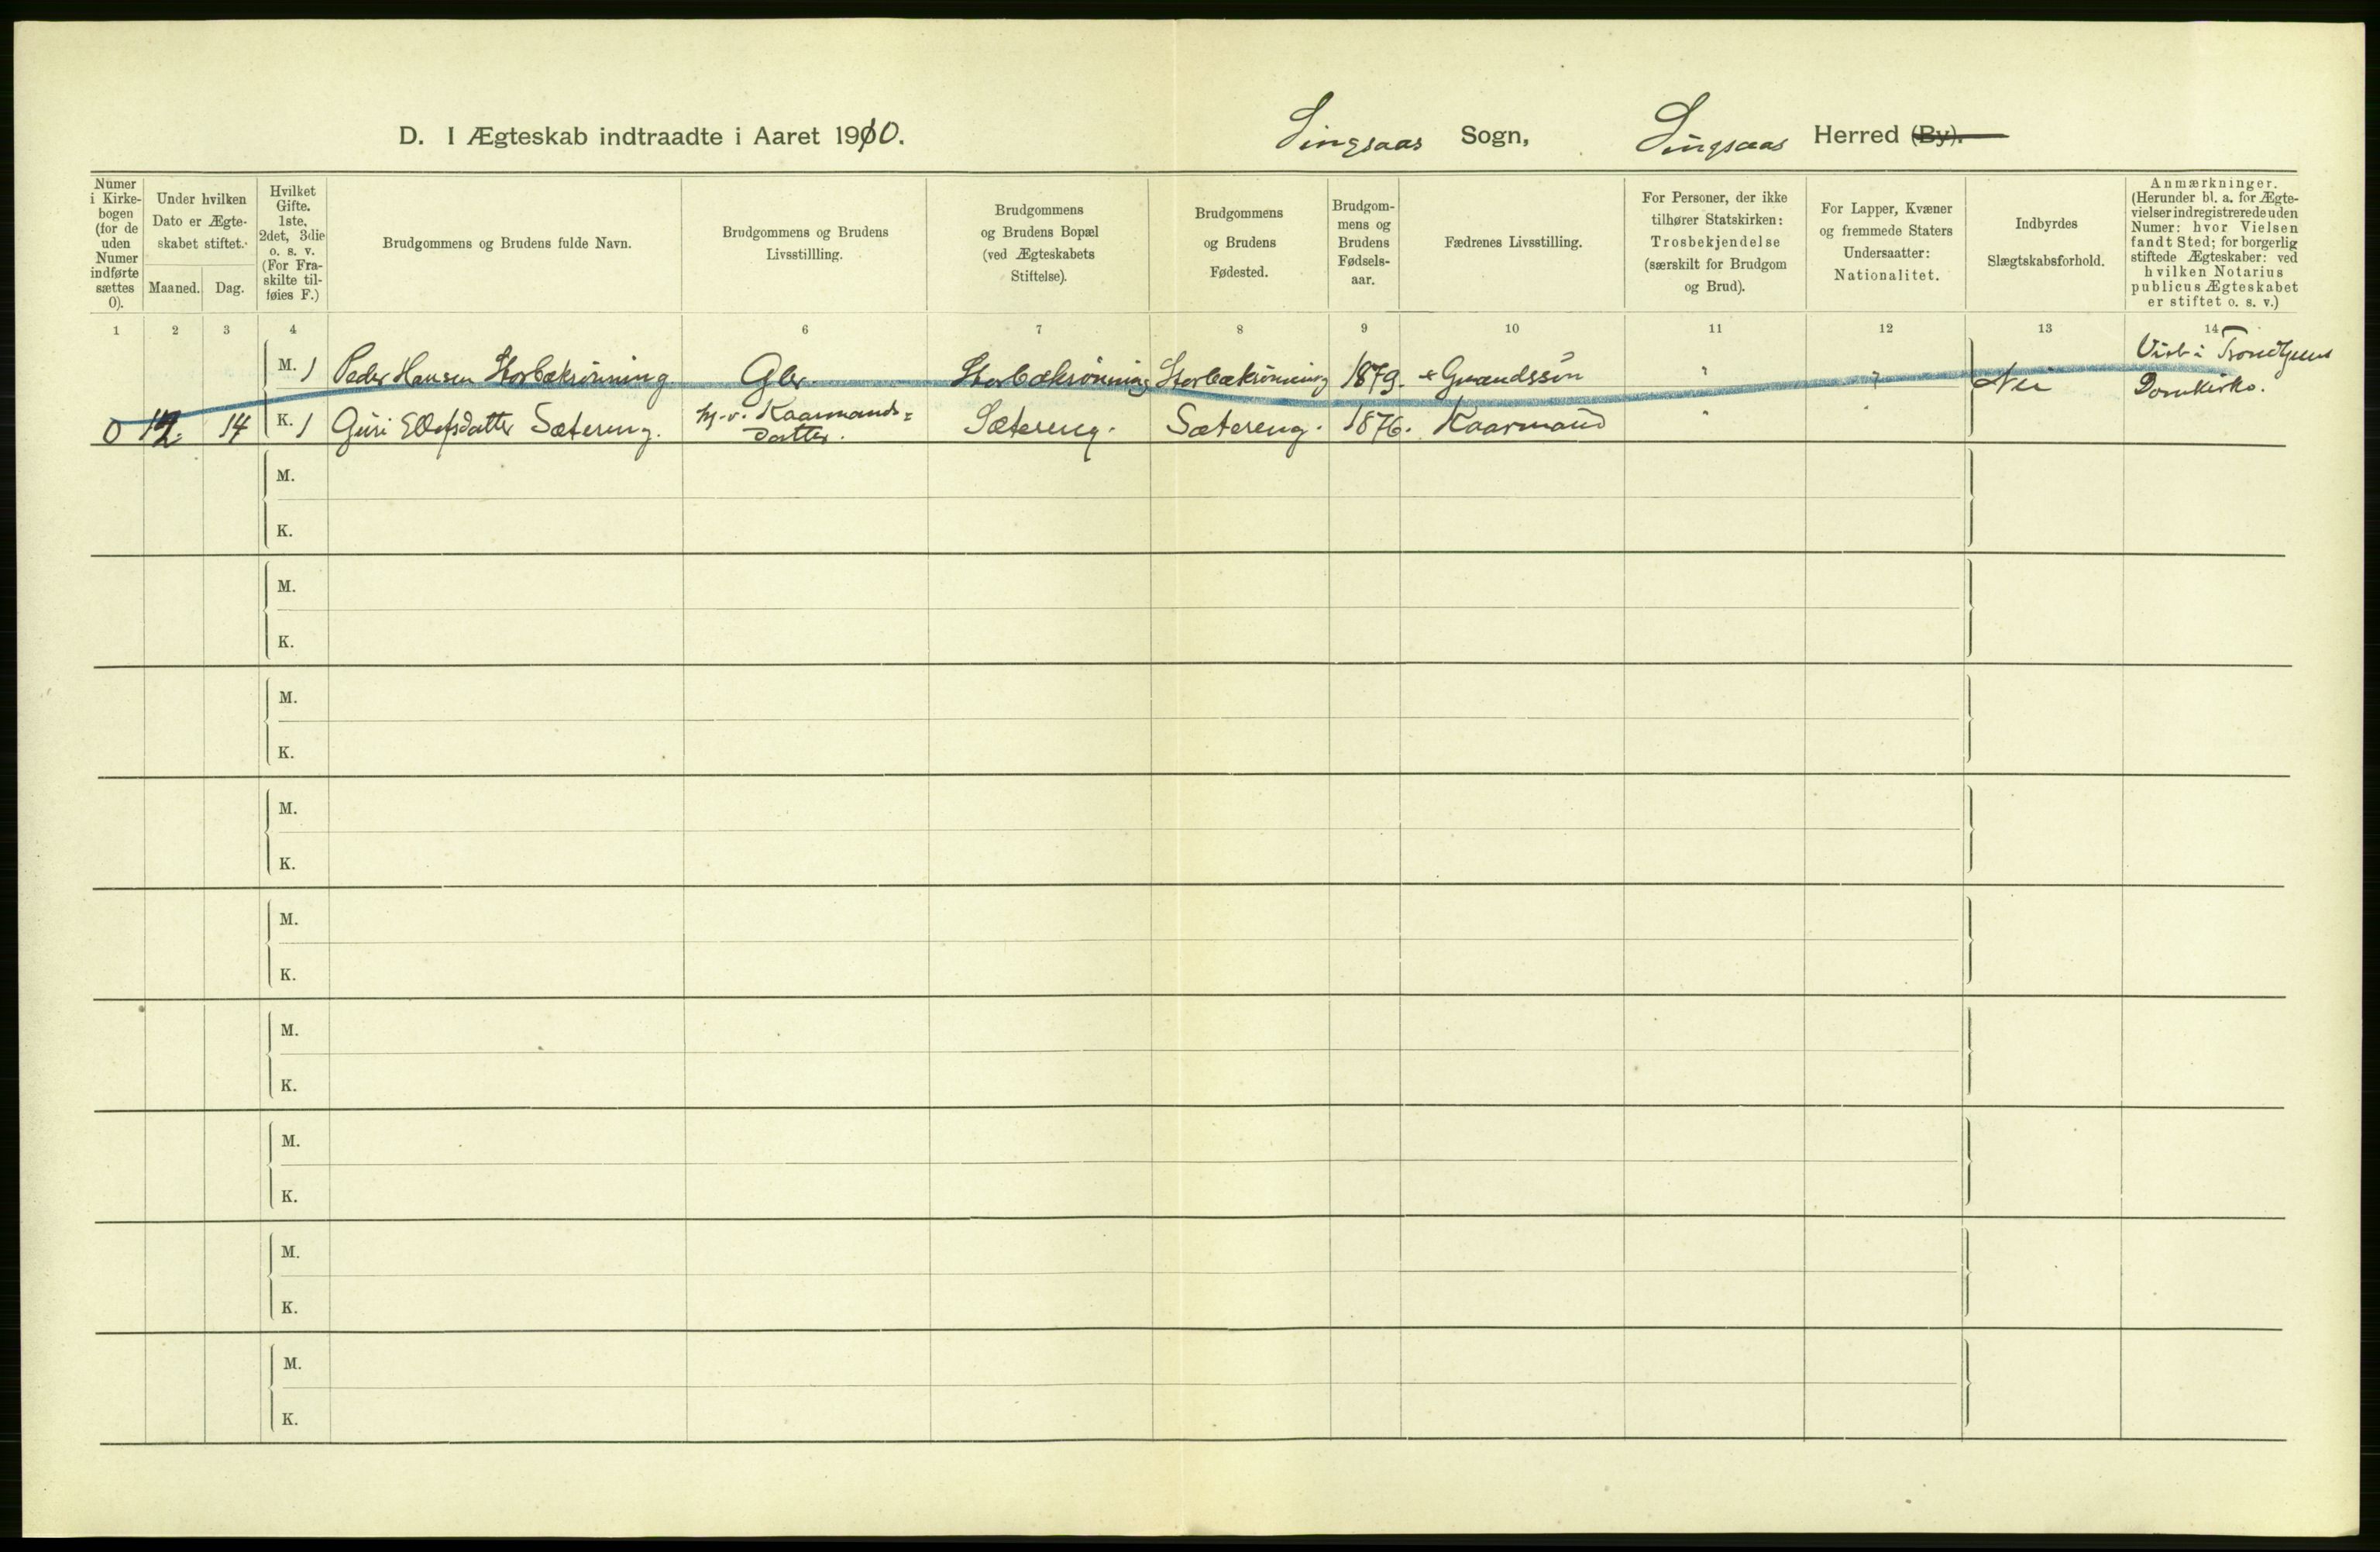 D. I Ægteskab indtraadte i Aaret 1910. Singsaas Sogn, Singsaas Herred (By).
Numer i Kirkebogen (for de uden Numer indførte sættes 0).
Under hvilken Dato er Ægteskabet stiftet.
Maaned. Dag.
Hvilket Gifte. 1ste, 2det, 3die o. s. v. (For Fraskilte tilføies F.)
Brudgommens og Brudens fulde Navn.
Brudgommens og Brudens Livsstillling.
Brudgommens og Brudens Bopæl (ved Ægteskabets Stiftelse).
Brudgommens og Brudens Fødested.
Brudgommens og Brudens Fødselsaar.
Fædrenes Livsstilling.
For Personer, der ikke tilhører Statskirken: Trosbekjendelse (særskilt for Brudgom og Brud).
For Lapper, Kvæner og fremmede Staters Undersaatter: Nationalitet.
Indbyrdes Slægtskabsforhold.
Anmærkninger. (Herunder bl. a. for Ægtevielser indregistrerede uden Numer: hvor Vielsen fandt Sted; for borgerlig stiftede Ægteskaber: ved hvilken Notarius publicus Ægteskabet er stiftet o. s. v.)
1 2 3 4 6 7 8 9 10 11 12 13 14
M. 1 Peder Hansen Storbækrønning Gbr. Storbækrønning Storbækrønning 1879. Gmandssøn " " Nei Viet i Trondhjems Domkirke.
0 12. 14 K. 1 Guri Ellefsdatter Sætereng. hj. v. Kaarmands=
datter. Sætereng. Sætereng. 1876. Kaarmand "
M.
K.
M.
K.
M.
K.
M.
K.
M.
K.
M.
K.
M.
K.
M.
K.
M.
K.